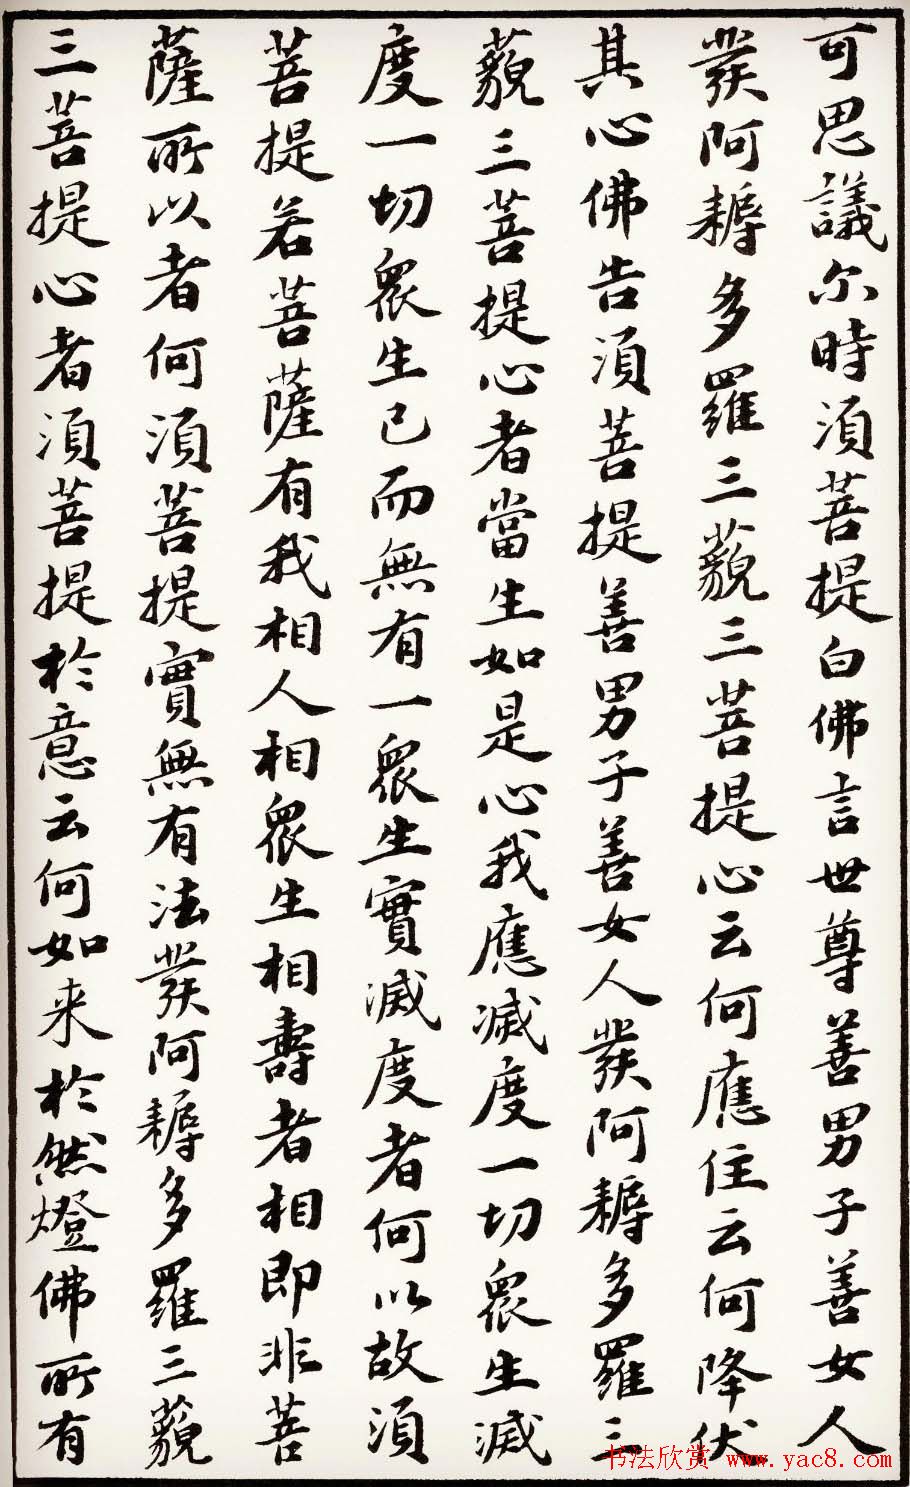 可思議尔時須菩提白佛言世尊善男子善女人
發阿耨多羅三藐三菩提心云何應住云何降伏
其心佛告須菩提善男子善女人發阿耨多羅三
藐三菩提心者當生如是心我應滅度一切眾生滅
度一切眾生已而無有一眾生實滅度者何以故須
菩提若菩薩有我相人相眾生相壽者相即非菩
薩所以者何須菩提實無有法發阿耨多羅三藐
三菩提心者須菩提於意云何如来於然燈佛所有
书法欣赏 www.yac8.com